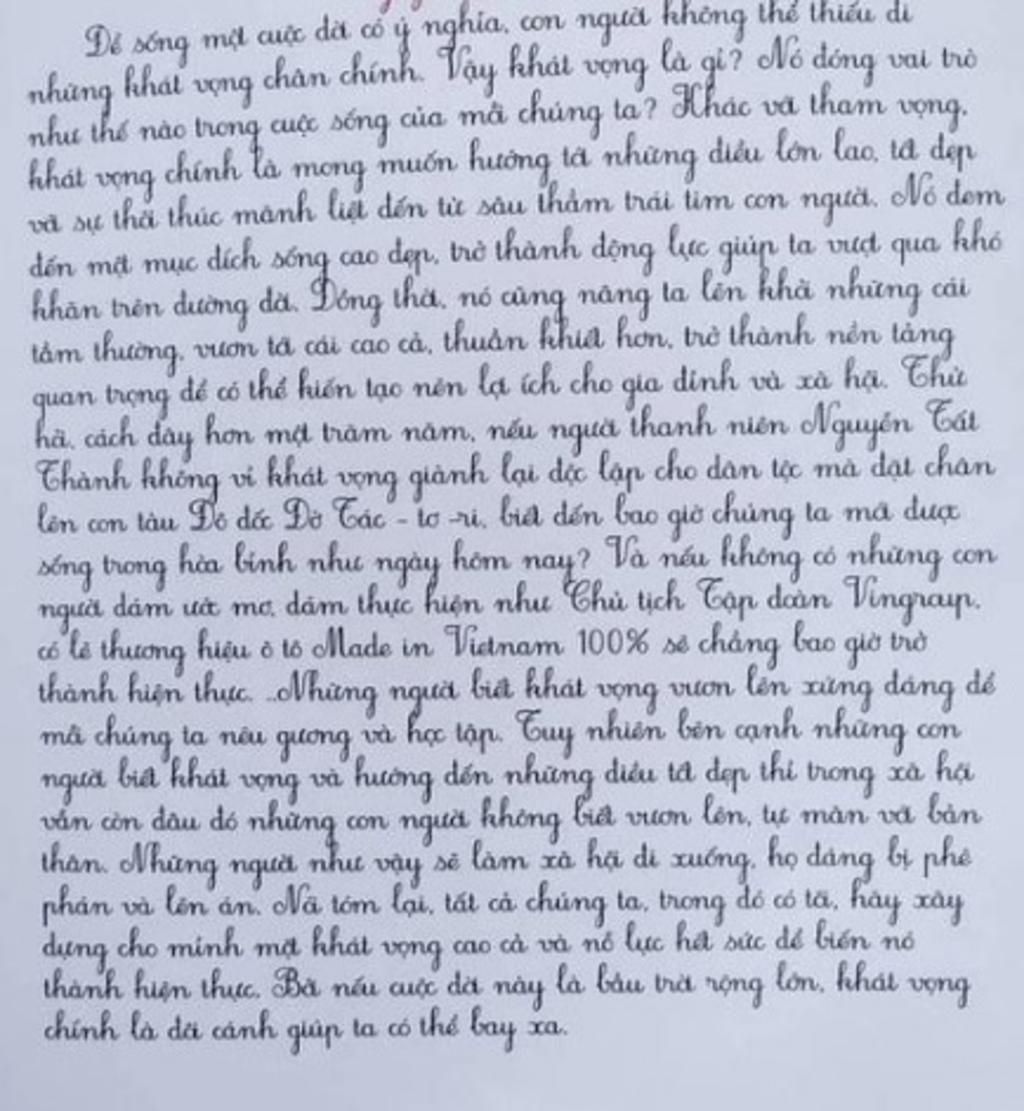 Để sống một cuộc đời có ý nghĩa, con người không thể thiếu đi
những khát vọng chân chính. Vậy khát vọng là gì? Nó đóng vai trò
như thế nào trong cuộc sống của mỗi chúng ta? Khác với tham vọng,
khát vọng chính là mong muốn hướng tới những điều lớn lao, tốt đẹp
với sự thôi thúc mãnh liệt đến từ sâu thẳm trái tim con người. Nó đem
đến một mục đích sống cao đẹp, trở thành động lực giúp ta vượt qua khó
khăn trên đường đời. Đồng thời, nó cũng nâng ta lên khỏi những cái
tầm thường, vươn tới cái cao cả, thuần khiết hơn, trở thành nền tảng
quan trọng để có thể kiến tạo nên lợi ích cho gia đình và xã hội. Thử
hỏi, cách đây hơn một trăm năm, nếu người thanh niên Nguyễn Tất
Thành không vì khát vọng giành lại độc lập cho dân tộc mà đặt chân
lên con tàu Đô đốc Đờ Tác - tơ -ri, biết đến bao giờ chúng ta mới được
sống trong hòa bình như ngày hôm nay? Và nếu không có những con
người dám ước mơ, dám thực hiện như Chủ tịch Tập đoàn Vingroup,
có lẽ thương hiệu ô tô Made in Vietnam 100% sẽ chẳng bao giờ trở
thành hiện thực. ..Những người biết khát vọng vươn lên xứng đáng để
mỗi chúng ta nêu gương và học tập. Tuy nhiên bên cạnh những con
người biết khát vọng và hướng đến những điều tốt đẹp thì trong xã hội
vẫn còn đâu đó những con người không biết vươn lên, tự mãn với bản
thân. Những người như vậy sẽ làm xã hội đi xuống, họ đáng bị phê
phán và lên án. Nói tóm lại, tất cả chúng ta, trong đó có tôi, hãy xây
dựng cho mình một khát vọng cao cả và nỗ lực hết sức để biến nó
thành hiện thực. Bởi nếu cuộc đời này là bầu trời rộng lớn, khát vọng
chính là đôi cánh giúp ta có thể bay xa.